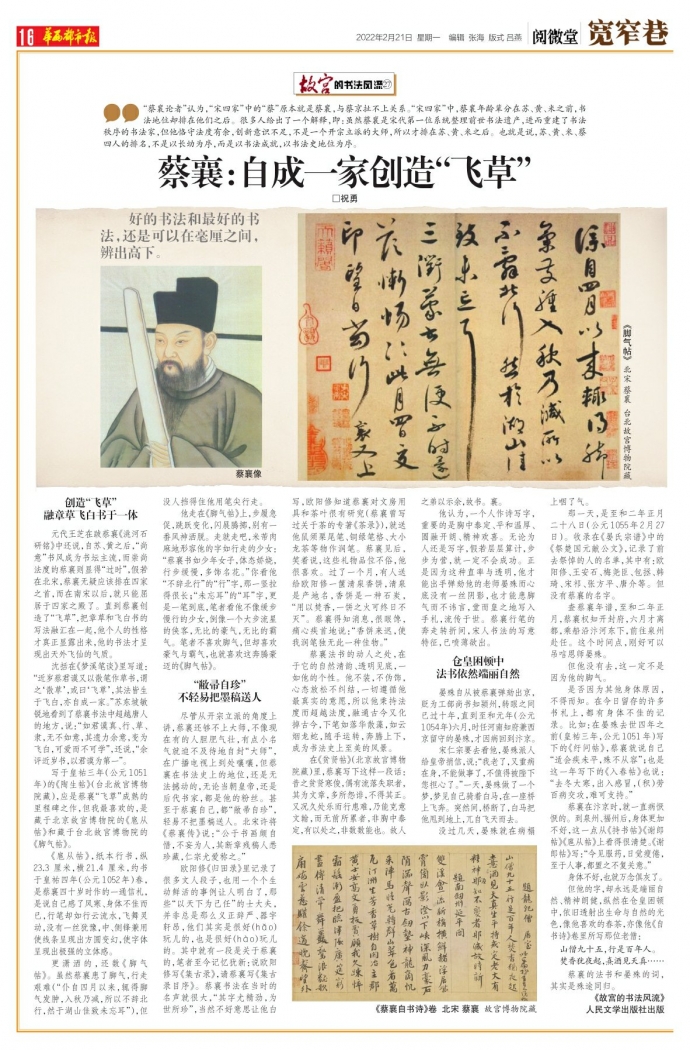 16 华西都市报
2022年2月21日 星期一 编辑 张海 版式 吕燕
阅微堂
宽窄巷
故宫的书法风流㉗
“蔡襄论者”认为,“宋四家”中的“蔡”原本就是蔡襄,与蔡京扯不上关系。“宋四家”中,蔡襄年龄辈分在苏、黄、米之前,书
法地位却排在他们之后。很多人给出了一个解释,即:虽然蔡襄是宋代第一位系统整理前世书法遗产,进而重建了书法
秩序的书法家,但他恪守法度有余,创新意识不足,不是一个开宗立派的大师,所以才排在苏、黄、米之后。也就是说,苏、黄、米、蔡
四人的排名,不是以长幼为序,而是以书法成就,以书法史地位为序。
蔡襄:自成一家创造“飞草”
□祝勇
好的书法和最好的书
法,还是可以在毫厘之间,
辨出高下。
蔡襄像
《脚气帖》 北宋 蔡襄 台北故宫博物院藏
创造“飞草”
融章草飞白书于一体
元代王芝在跋蔡襄《洮河石
研铭》中还说,自苏、黄之后,“尚
意”书风成为书坛主流,而崇尚
法度的蔡襄则显得“过时”,假若
在北宋,蔡襄无疑应该排在四家
之首,而在南宋以后,就只能屈
居于四家之殿了。直到蔡襄创
造了“飞草”,把章草和飞白书的
写法融汇在一起,他个人的性格
才真正显露出来,他的书法才呈
现出天外飞仙的气质。
沈括在《梦溪笔谈》里写道:
“近岁蔡君谟又以散笔作草书,谓
之‘散草’,或曰‘飞草’,其法皆生
于飞白,亦自成一家。”苏东坡敏
锐地看到了蔡襄书法中超越唐人
的地方,说:“如君谟真、行、草、
隶,无不如意,其遗力余意,变为
飞白,可爱而不可学”,还说,“余
评近岁书,以君谟为第一”。
写于皇祐三年(公元1051
年)的《陶生帖》(台北故宫博物
院藏),应是蔡襄“飞草”成熟的
里程碑之作,但我最喜欢的,是
藏于北京故宫博物院的《扈从
帖》和藏于台北故宫博物院的
《脚气帖》。
《扈从帖》,纸本行书,纵
23.3厘米,横21.4厘米,约书
于皇祐四年(公元1052年)春,
是蔡襄四十岁时作的一通信札,
是说自己感了风寒,身体不佳而
已,行笔却如行云流水,飞舞灵
动,没有一丝犹豫,中、侧锋兼用
使线条呈现出方圆变幻,使字体
呈现出极强的立体感。
更潇洒的,还数《脚气
帖》。虽然蔡襄患了脚气,行走
艰难(“仆自四月以来,辄得脚
气发肿,入秋乃减,所以不辞北
行,然于湖山佳致未忘耳”),但
没人挡得住他用笔尖行走。
他走在《脚气帖》上,步履急
促,跳跃变化,闪展腾挪,别有一
番风神洒脱。走就走吧,米芾肉
麻地形容他的字如行走的少女:
“蔡襄书如少年女子,体态娇娆,
行步缓慢,多饰名花。”你看他
“不辞北行”的“行”字,那一竖拉
得很长;“未忘耳”的“耳”字,更
是一笔到底,笔者看他不像缓步
慢行的少女,倒像一个大步流星
的侠客,无比的豪气,无比的霸
气。笔者不喜欢脚气,但却喜欢
豪气与霸气,也就喜欢这奔腾豪
迈的《脚气帖》。
“敝帚自珍”
不轻易把墨稿送人
尽管从开宗立派的角度上
讲,蔡襄还够不上大师,不像现
在有的人胆肥气壮,有点小名
气就迫不及待地自封“大师”,
在广播电视上到处嚷嚷,但蔡
襄在书法史上的地位,还是无
法撼动的,无论当朝皇帝,还是
后代书家,都是他的粉丝。甚
至于蔡襄自己,都“敝帚自珍”,
轻易不把墨稿送人。北宋许将
《蔡襄传》说:“公于书画颇自
惜,不妄为人,其断章残稿人悉
珍藏,仁宗尤爱称之。”
欧阳修《归田录》里记录了
很多文人段子,也用一个个生
动鲜活的事例让人明白了,那
些“以天下为己任”的士大夫,
并非总是那么义正辞严、器宇
轩昂,他们其实是很好(hǎo)
玩儿的,也是很好(hào)玩儿
的。其中就有一段是关于蔡襄
的,笔者至今记忆犹新;说欧阳
修写《集古录》,请蔡襄写《集古
录目序》。蔡襄书法在当时的
名声就很大,“其字尤精劲,为
世所珍”,当然不好意思让他白
写,欧阳修知道蔡襄对文房用
具和茶叶很有研究(蔡襄曾写
过关于茶的专著《茶录》),就送
他鼠须栗尾笔、铜绿笔格、大小
龙茶等物作润笔。蔡襄见后,
笑着说,这些礼物品位不俗,他
很喜欢。过了一个月,有人送
给欧阳修一箧清泉香饼,清泉
是产地名,香饼是一种石炭,
“用以焚香,一饼之火可终日不
灭”。蔡襄得知消息,很眼馋,
痛心疾首地说:“香饼来迟,使
我润笔独无此一种佳物。”
蔡襄法书的动人之处,在
于它的自然清劲、透明见底,一
如他的个性。他不装,不伪饰,
心态放松不纠结,一切遵循他
最真实的意愿,所以他秉持法
度而超越法度,融通古今又化
掉古今,下笔如落华散藻,如云
烟龙蛇,随手运转,奔腾上下,
成为书法史上至美的风景。
在《贫贤帖》(北京故宫博物
院藏)里,蔡襄写下这样一段话:
昔之贫贤寒俊,偶有流落失职者,
其为文章,多所怨诽,不得其正。
又况欠处乐而行患难,乃能克意
文翰,而无前所累者,非胸中泰
定,有以处之,非艰敢能也。故人
之弟以示余,故书。襄。
他认为,一个人作诗写字,
重要的是胸中泰定、平和温厚、
圆融开朗、精神欢喜。无论为
人还是写字,假若层层算计,步
步为营,就一定不会成功。正
是因为这种直率与透明,他才
能出手弹劾他的老师晏殊而心
底没有一丝阴影,也才能患脚
气而不讳言,堂而皇之地写入
手札,流传于世。蔡襄行笔的
奔走转折间,宋人书法的写意
特征,已喷薄欲出。
仓皇困顿中
法书依然端丽自然
晏殊自从被蔡襄弹劾出京,
贬为工部尚书知颍州,转眼之间
已过十年,直到至和元年(公元
1054年)六月,时任河南知府兼西
京留守的晏殊,才因病回到汴京。
宋仁宗要去看他,晏殊派人
给皇帝捎信,说:“我老了,又重病
在身,不能做事了,不值得被陛下
您担心了。”一天,晏殊做了一个
梦,梦见自己骑着白马,在一座桥
上飞奔。突然间,桥断了,白马把
他甩到地上,兀自飞天而去。
没过几天,晏殊就在病榻
上咽了气。
那一天,是至和二年正月
二十八日(公元1055年2月27
日)。收录在《晏氏宗谱》中的
《祭楚国元献公文》,记录了前
去祭悼的人的名单,其中有:欧
阳修、王安石、梅尧臣、包拯、韩
琦、宋祁、张方平、唐介等。但
没有蔡襄的名字。
查蔡襄年谱,至和二年正
月,蔡襄权知开封府,六月才离
都,乘船沿汴河东下,前往泉州
赴任。这个时间点,刚好可以
吊唁恩师晏殊。
但他没有去,这一定不是
因为他的脚气。
是否因为其他身体原因,
不得而知。在今日留存的许多
书札上,都有身体不佳的记
录。比如:在晏殊去世四年之
前(皇祐三年,公元1051年)写
下的《行间帖》,蔡襄就说自己
“适会疾未平,殊不从容”;也是
这一年写下的《入春帖》也说:
“去冬大寒,出入感冒,(积)劳
百病交攻,难可支持。”
蔡襄在汴京时,就一直病恹
恹的。到泉州、福州后,身体更加
不好,这一点从《持书帖》《谢郎
帖》《扈从帖》上看得很清楚。《谢
郎帖》写:“今见服药,日觉疲倦,
至于人事,都置之不复关意。”
身体不好,也就万念俱灰了。
但他的字,却永远是端丽自
然、精神朗健,纵然在仓皇困顿
中,依旧透射出生命与自然的光
色,像他喜欢的春茶,亦像他《自
书诗》卷里所写那位老僧:
山僧九十五,行是百年人。
焚香犹夜起,喜酒见天真……
蔡襄的法书和晏殊的词,
其实是殊途同归。
《故宫的书法风流》
人民文学出版社出版
《蔡襄自书诗》卷 北宋 蔡襄 故宫博物院藏